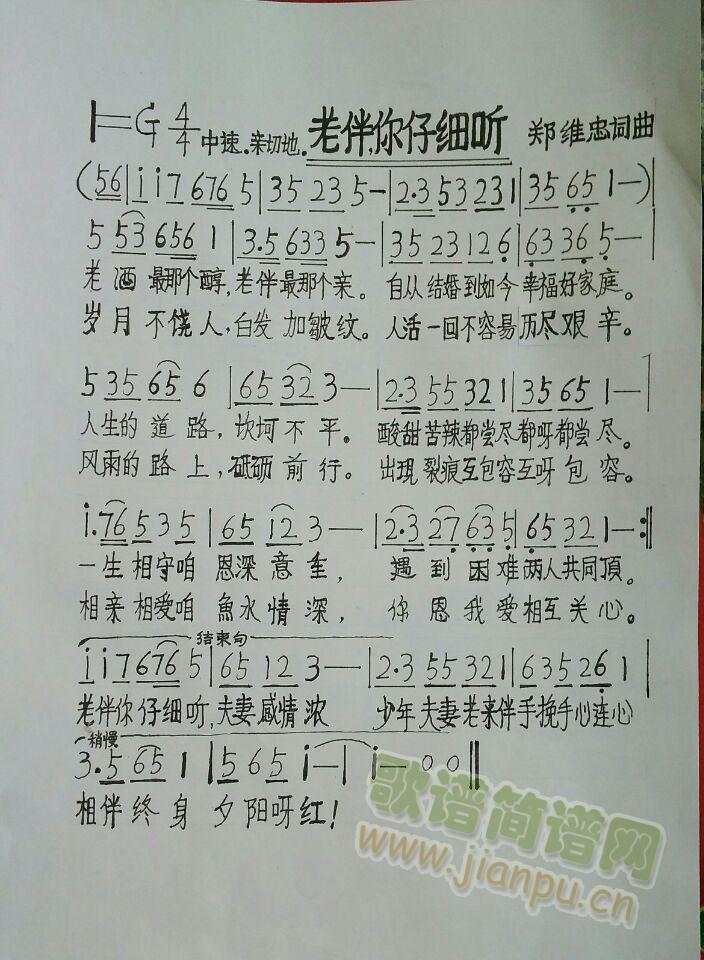 1=G 4/4 中速.亲切地. 老伴,你仔细听 郑维忠词曲
(56|i i 7 676 5|35 23 5-|2.3 53 231|35 65 1—)|
5 53 656 1|3.5 633 5—|35 23 12 6|63 36 5—
老酒最那个醇,老伴最那个亲。自从结婚到如今幸福好家庭。
岁月不饶人,白发加皱纹。人活一回不容易历尽艰辛。
5 35 65 6|65 32 3—|2.3 55 32 1|35 65 1—|
人生的道路,坎坷不平。酸甜苦辣都尝尽都呀都尝尽。
风雨的路上,砥砺前行。出現裂痕互包容互呀包容。
i.76 5 3 5|65 i2 3—|2.3 27 63 5|65 32 1—:||
一生相守咱恩深意重,遇到困难两人共同頂。
相亲相爱咱魚水情深,你恩我爱相互关心。
结束句
i i 7 676 5|65 12 3—|2.3 55 32 1|63 52 6 1|
老伴你仔细听,夫妻感情浓 少年夫妻老来伴手挽手心连心
稍慢
3.5 65 1|5 65 i—|i—00||
相伴终身夕阳呀红!
歌谱简谱网
www.jianpu.cn